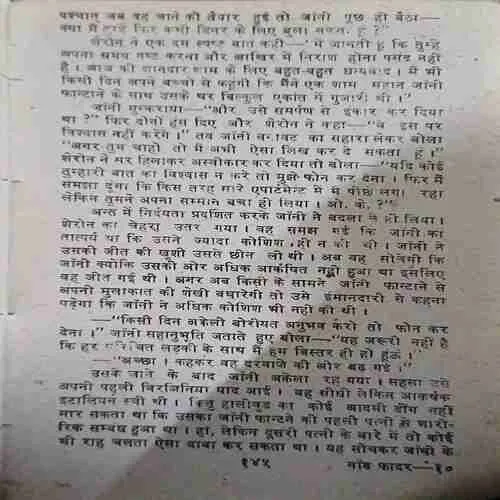 पश्चात् जब वह जाने को तैयार हुई तो जॉनी पूछ ही बैठा—
क्या मैं तुम्हें फिर कभी डिनर के लिए बुला सकता हूं ?"
शैरोन ने एक दम स्पष्ट बात कही—' मैं जानती हूं कि तुम्हें
अपना समय नष्ट करना और आखिर में निराश होना पसंद नहीं
है । आज की शानदार शाम के लिए बहुत-बहुत धन्यवाद । मैं भी
किसी दिन अपने बच्चों से कहूंगी कि मैंने एक शाम महान जॉनी
फान्टाने के साथ उसके घर बिल्कुल एकांत में गुजारी थी ।"
जॉनी मुस्कराया—"और उसे समर्पण से इंकार कर दिया
था ?" फिर दोनों हंस दिए और शैरोन ने कहा—"वे इस पर
विश्वास नहीं करेंगे ।" तब जॉनी बनावट का सहारा लेकर बोला
"अगर तुम चाहो तो मैं अभी ऐसा लिख कर दे सकता हूं ।"
शैरोन ने सर हिलाकर अस्वीकार कर दिया तो बोला—"यदि कोई
तुम्हारी बात का विश्वास न करे तो मुझे फोन कर देना । फिर मैं
समझा दूंगा कि किस तरह मारे एपार्टमेन्ट में मैं पीछे लगा रहा
लेकिन तुमने अपना सम्मान बचा ही लिया । ओ. के. ?"
अन्त में निर्दयता प्रदर्शित करके जॉनी ने बदला ले ही लिया ।
शैरोन का चेहरा उतर गया । वह समझ गई कि जॉनी का
तात्पर्य था कि उसने ज्यादा कोशिश ही न की थी । जॉनी ने
उसकी जीत की खुशी उससे छीन ली थी । अब वह सोचेगी कि
जॉनी क्योंकि उसकी ओर अधिक आकर्षित नहीं हुआ था इसलिए
वह जीत गई थी । अगर अब किसी के सामने जॉनी फान्टाने से
अपनी मुलाकात की शेखी बघारेगी तो उसे ईमानदारी से कहना
पड़ेगा कि जॉनी ने अधिक कोशिश भी नहीं की थी ।
—"किसी दिन अकेली बोरीयत अनुभव करो तो फोन कर
देना ।" जॉनी सहानुभूति जताते हुए बोला—"यह जरूरी नहीं है
कि हर परिचित लड़की के साथ मैं हम बिस्तर ही होऊं ।"
—"अच्छा । कहकर वह दरवाजे की ओर बढ़ गई ।"
उसके जाने के बाद जॉनी अकेला रह गया । सहसा उसे
अपनी पहली विरजिनिया याद आई । वह सीधी लेकिन आकर्षक
इटालियन स्त्री थी । किन्तु हालीवुड का कोई आदमी डींग नहीं
मार सकता था कि उसका जॉनी फान्टाने की पहली पत्नी से शारी-
रिक सम्बंध हुआ था । हां, लेकिन दूसरी पत्नी के बारे में तो कोई
भी राह चलता ऐसा दावा कर सकता था । यह सोचकर जॉनी के
१४५ गॉड फादर—१०